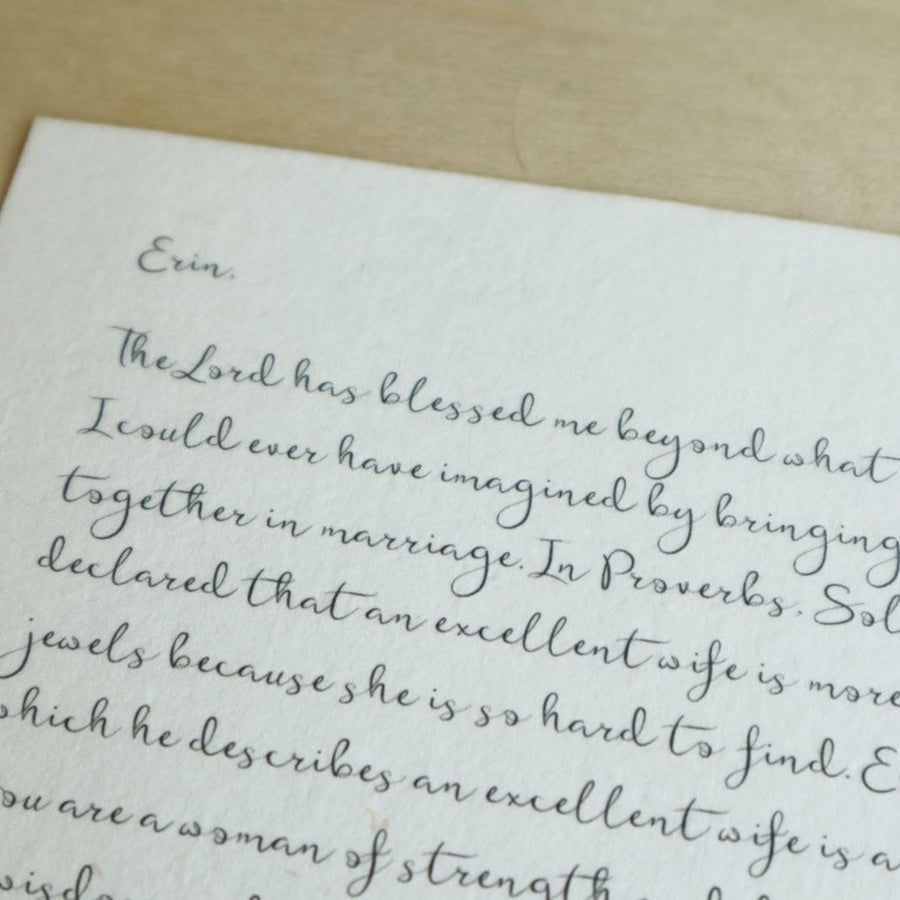 Erin,
The Lord has blessed me beyond what
I could ever have imagined by bringing
together in marriage. In Proverbs, Sol
declared that an excellent wife is more
jewels because she is so hard to find. E
which he describes an excellent wife is a
you are a woman of strength
wisdo